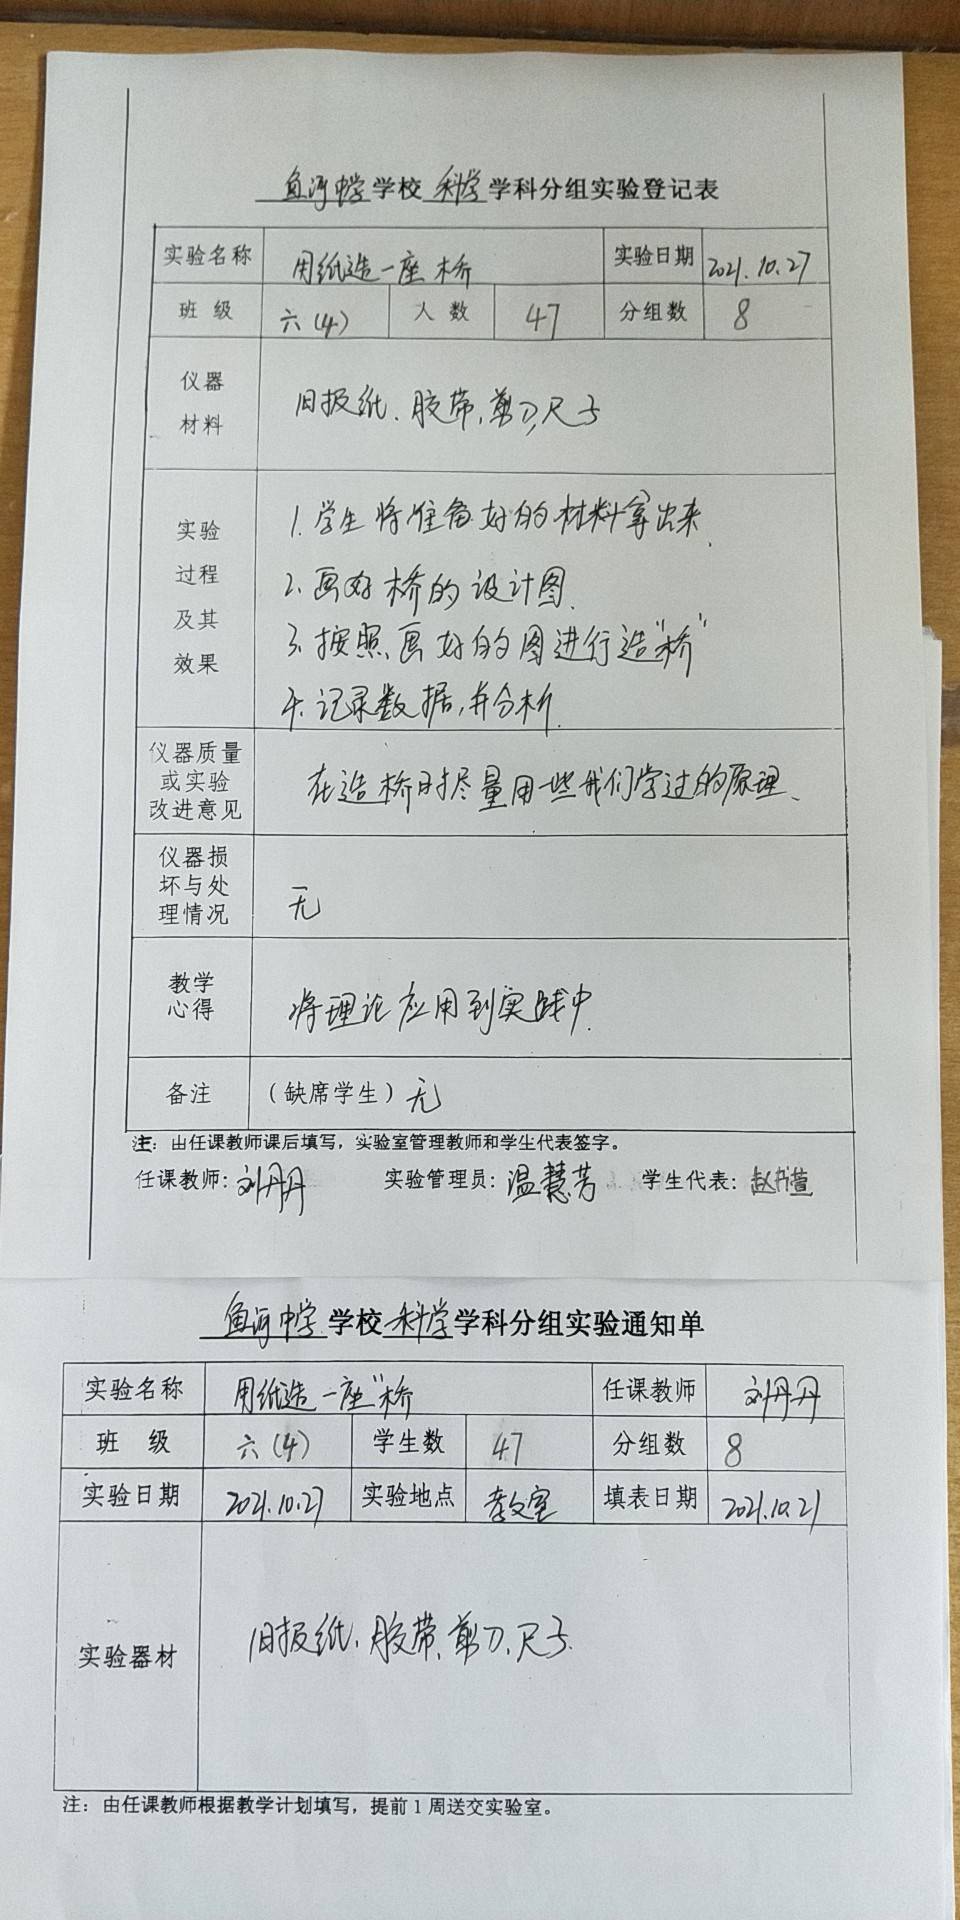 鱼河中学学校科学学科分组实验登记表
实验名称 用纸造一座桥 实验日期 2021.10.27
班级 六(4) 人数 47 分组数 8
仪器
材料
旧报纸、胶带、剪刀、尺子
实验
过程
及其
效果
1.学生将准备好的材料拿出来.
2.画好桥的设计图.
3.按照画好的图进行造"桥"
4.记录数据,并分析.
仪器质量
或实验
改进意见
在造桥时尽量用一些我们学过的原理、
仪器损
坏与处
理情况
无
教学
心得
将理论应用到实践中.
备注 (缺席学生)无
注：由任课教师课后填写，实验室管理教师和学生代表签字。
任课教师：刘丹丹 实验管理员：温慧芳 学生代表：赵书萱
鱼河中学学校科学学科分组实验通知单
实验名称 用纸造一座"桥 任课教师 刘丹丹
班级 六(4) 学生数 47 分组数 8
实验日期 2021.10.27 实验地点 教室 填表日期 2021.10.21
实验器材 旧报纸、胶带、剪刀、尺子.
注：由任课教师根据教学计划填写，提前1周送交实验室。